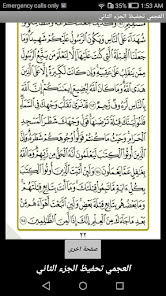 Emergency calls only 35% 1:53 AM
العجمي تحفيظ الجزء الثاني
شُهَدَآءَ عَلَى ٱلنَّاسِ وَيَكُونَ ٱلرَّسُولُ عَلَيْكُمْ شَهِيدًا وَمَا
جَعَلْنَا ٱلْقِبْلَةَ ٱلَّتِى كُنتَ عَلَيْهَآ إِلَّا لِنَعْلَمَ مَن يَتَّبِعُ ٱلرَّسُولَ
مِمَّن يَنقَلِبُ عَلَىٰ عَقِبَيْهِ وَإِن كَانَتْ لَكَبِيرَةً إِلَّا عَلَى ٱلَّذِينَ
هَدَى ٱللَّهُ وَمَا كَانَ ٱللَّهُ لِيُضِيعَ إِيمَٰنَكُمْ إِنَّ ٱللَّهَ بِٱلنَّاسِ
لَرَءُوفٌ رَّحِيمٌ ١٤٣ قَدْ نَرَىٰ تَقَلُّبَ وَجْهِكَ فِى ٱلسَّمَآءِ
فَلَنُوَلِّيَنَّكَ قِبْلَةً تَرْضَىٰهَا فَوَلِّ وَجْهَكَ شَطْرَ ٱلْمَسْجِدِ
ٱلْحَرَامِ وَحَيْثُ مَا كُنتُمْ فَوَلُّوا۟ وُجُوهَكُمْ شَطْرَهُۥ وَإِنَّ
ٱلَّذِينَ أُوتُوا۟ ٱلْكِتَٰبَ لَيَعْلَمُونَ أَنَّهُ ٱلْحَقُّ مِن رَّبِّهِمْ وَمَا
ٱللَّهُ بِغَٰفِلٍ عَمَّا يَعْمَلُونَ ١٤٤ وَلَئِنْ أَتَيْتَ ٱلَّذِينَ أُوتُوا۟
ٱلْكِتَٰبَ بِكُلِّ ءَايَةٍ مَّا تَبِعُوا۟ قِبْلَتَكَ وَمَآ أَنتَ بِتَابِعٍ قِبْلَتَهُمْ وَمَا
بَعْضُهُم بِتَابِعٍ قِبْلَةَ بَعْضٍ وَلَئِنِ ٱتَّبَعْتَ أَهْوَآءَهُم مِّنۢ
بَعْدِ مَا جَآءَكَ مِنَ ٱلْعِلْمِ إِنَّكَ إِذًا لَّمِنَ ٱلظَّٰلِمِينَ ١٤٥
٢٢
صفحة اخرى
العجمي تحفيظ الجزء الثاني